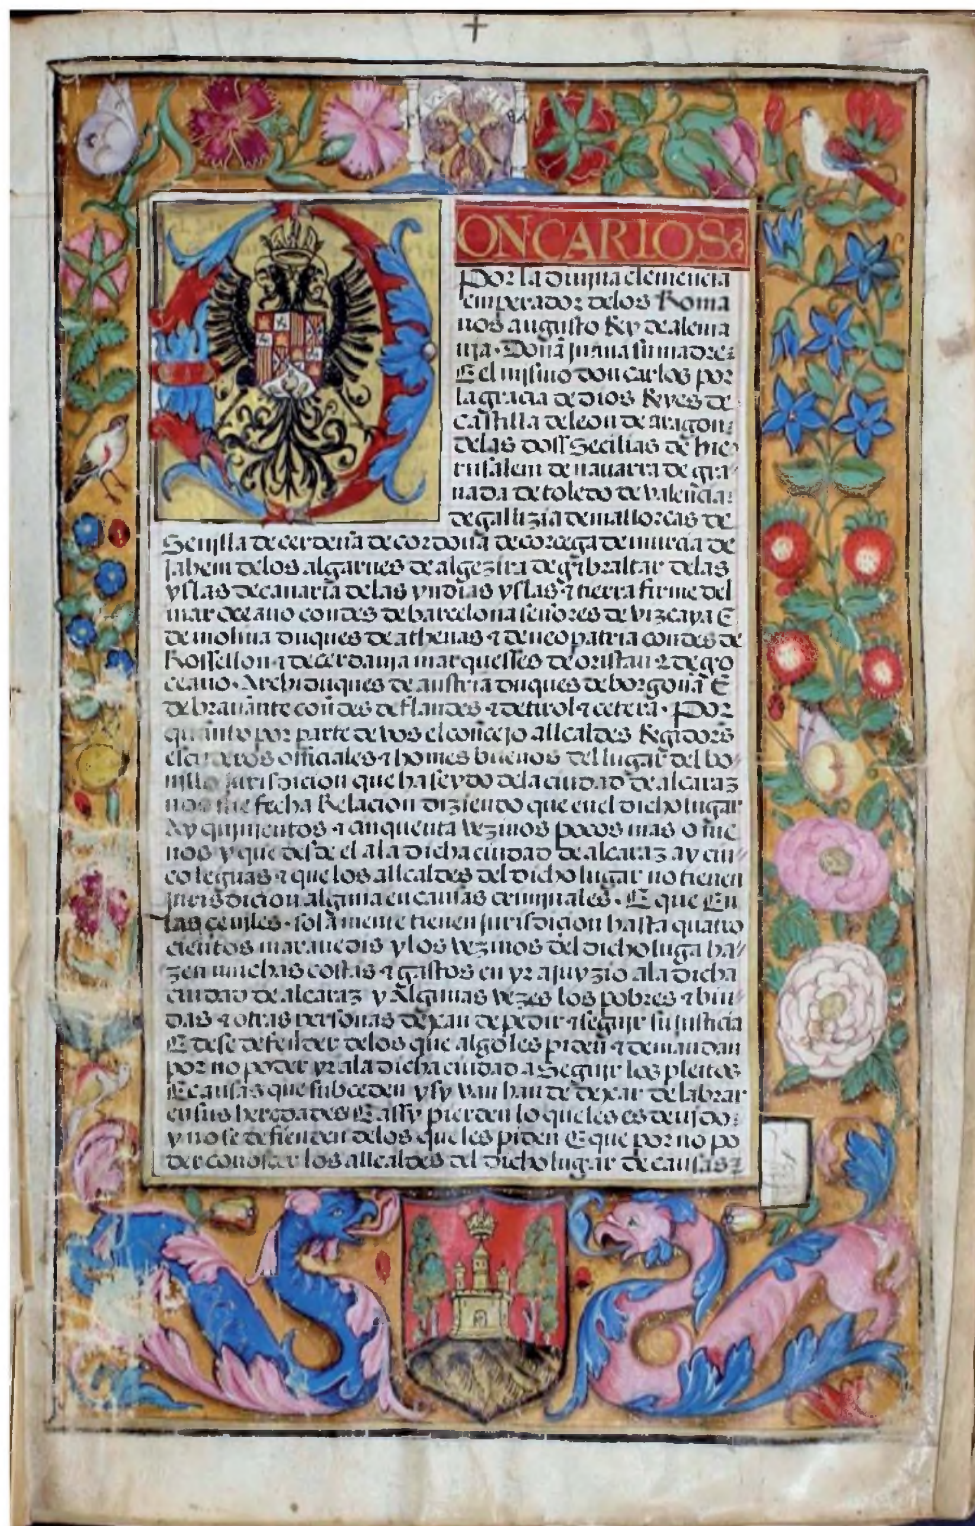 ON CARLOS
Por la diuina clemencia
emperador delos Roma
nos augusto Rey de alema
nja. Doña juana su madre
E el mismo don carlos por
la gracia de dios Reyes de
castilla de leon de aragon
delas doss Secilias de hie
rusalem de nauarra de gra
nada de toledo de valençia
de gallizia de mallorcas de
Seujlla de cerdeña de cordoua de corcega de murcia de
jahem delos algarues de algezira de gibraltar delas
yslas de canaria delas yndias yslas & tierra firme del
mar oceano condes de barcelona señores de vizcaya E
de molina duques de athenas & de neopatria condes de
Rossellon & de cerdanja marquesses de oristan & de go
ceano. Archiduques de austria duques de borgoña E
de brauante condes de flandes & de tirol & cetera. Por
quanto por parte de vos el conçejo allcaldes Regidors
escuderos officiales & homes buenos del lugar del bo
nillo jurisdicion que ha seydo dela ciudad de alcaraz
nos fue fecha Relacion diziendo que en el dicho lugar
Ay quinientos & cinquenta vezinos pocos mas o me
nos y que desde el ala dicha ciudad de alcaraz ay cin
co leguas & que los allcaldes del dicho lugar no tienen
jurisdicion alguna en causas criminales. E que En
las ceuiles. solamente tienen jurisdicion hasta quatro
cientos marauedis y los vezinos del dicho luga ha
zen muchas costas & gastos en yr a juyzio ala dicha
ciudad de alcaraz y Algunas vezes los pobres & biu
das & otras personas dexan de pedir & seguir su justicia
E de se defender delos que algo les piden & demandan
por no poder yr ala dicha ciudad a Seguir los pleitos
E causas que subceden y sy van han de dexar de labrar
en sus heredades E assy pierden lo que les es deujdo
y no se defienden delos que les piden E que por no po
der conoscer los allcaldes del dicho lugar de causas